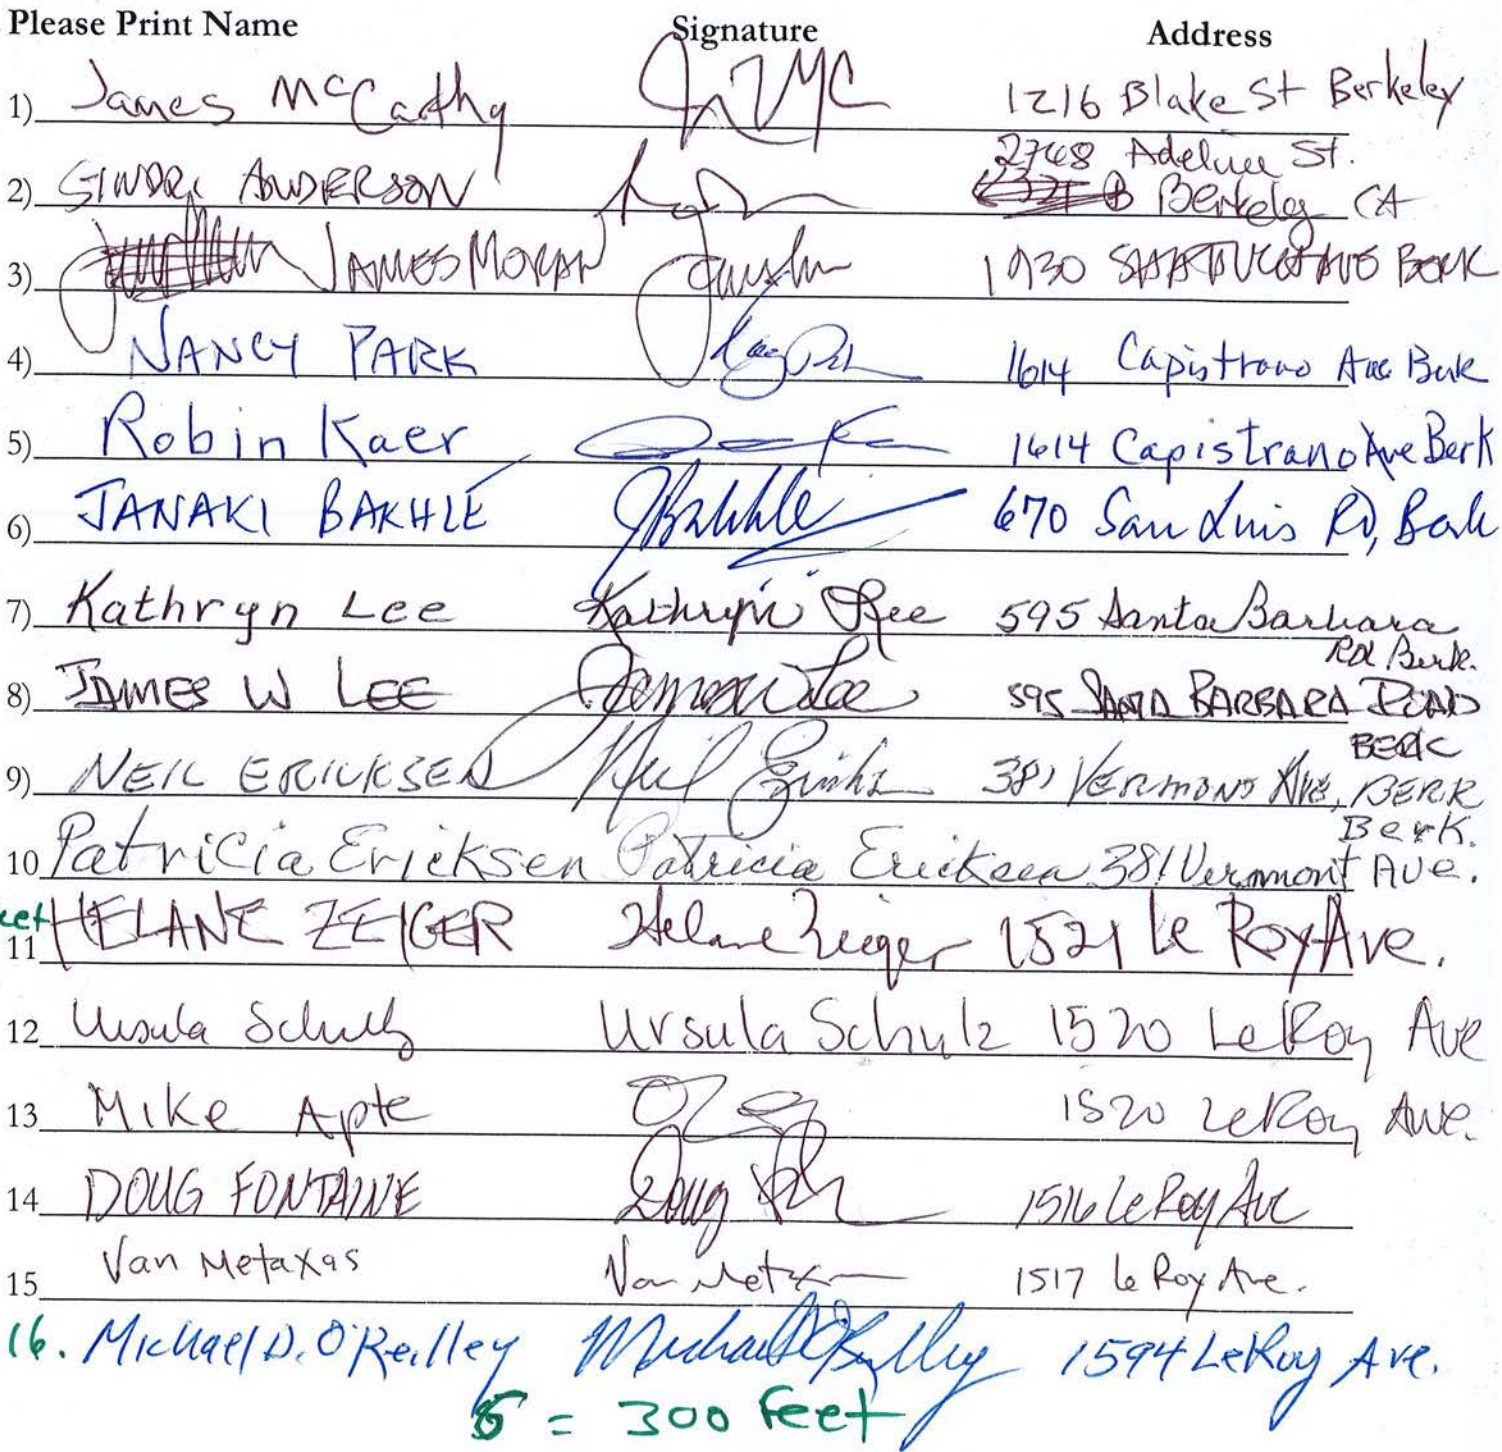 Please Print Name Signature Address
1) James McCathy 1216 Blake St Berkeley
2748 Adeline St.
2) SINDRI ANDERSON Berkeley CA
3) JAMES MORAN 1930 SHATTUCK AVE BERK
4) NANCY PARK 1614 Capistrano Ave Berk
5) Robin Kaer 1614 Capistrano Ave Berk
6) JANAKI BAKHLE JBakhle 670 San Luis Rd, Berk
7) Kathryn Lee Kathryn Lee 595 Santa Barbara
Rd Berk.
8) JAMES W LEE James W Lee 595 SANTA BARBARA ROAD
BERK
9) NEIL ERICKSEN Neil 381 VERMONT AVE, BERK
Berk.
10 Patricia Ericksen Patricia Ericksen 381 Vermont Ave.
11 HELANE ZEIGER Helane Zeiger 1521 Le Roy Ave.
12 Ursula Schulz Ursula Schulz 1520 LeRoy Ave
13 Mike Apte 1520 LeRoy Ave.
14 DOUG FONTAINE Doug 1516 Le Roy Ave
15 Van Metaxas Van Metx 1517 Le Roy Ave.
16. Michael D. O'Reilley Michael O'Reilley 1594 LeRoy Ave.
= 300 feet